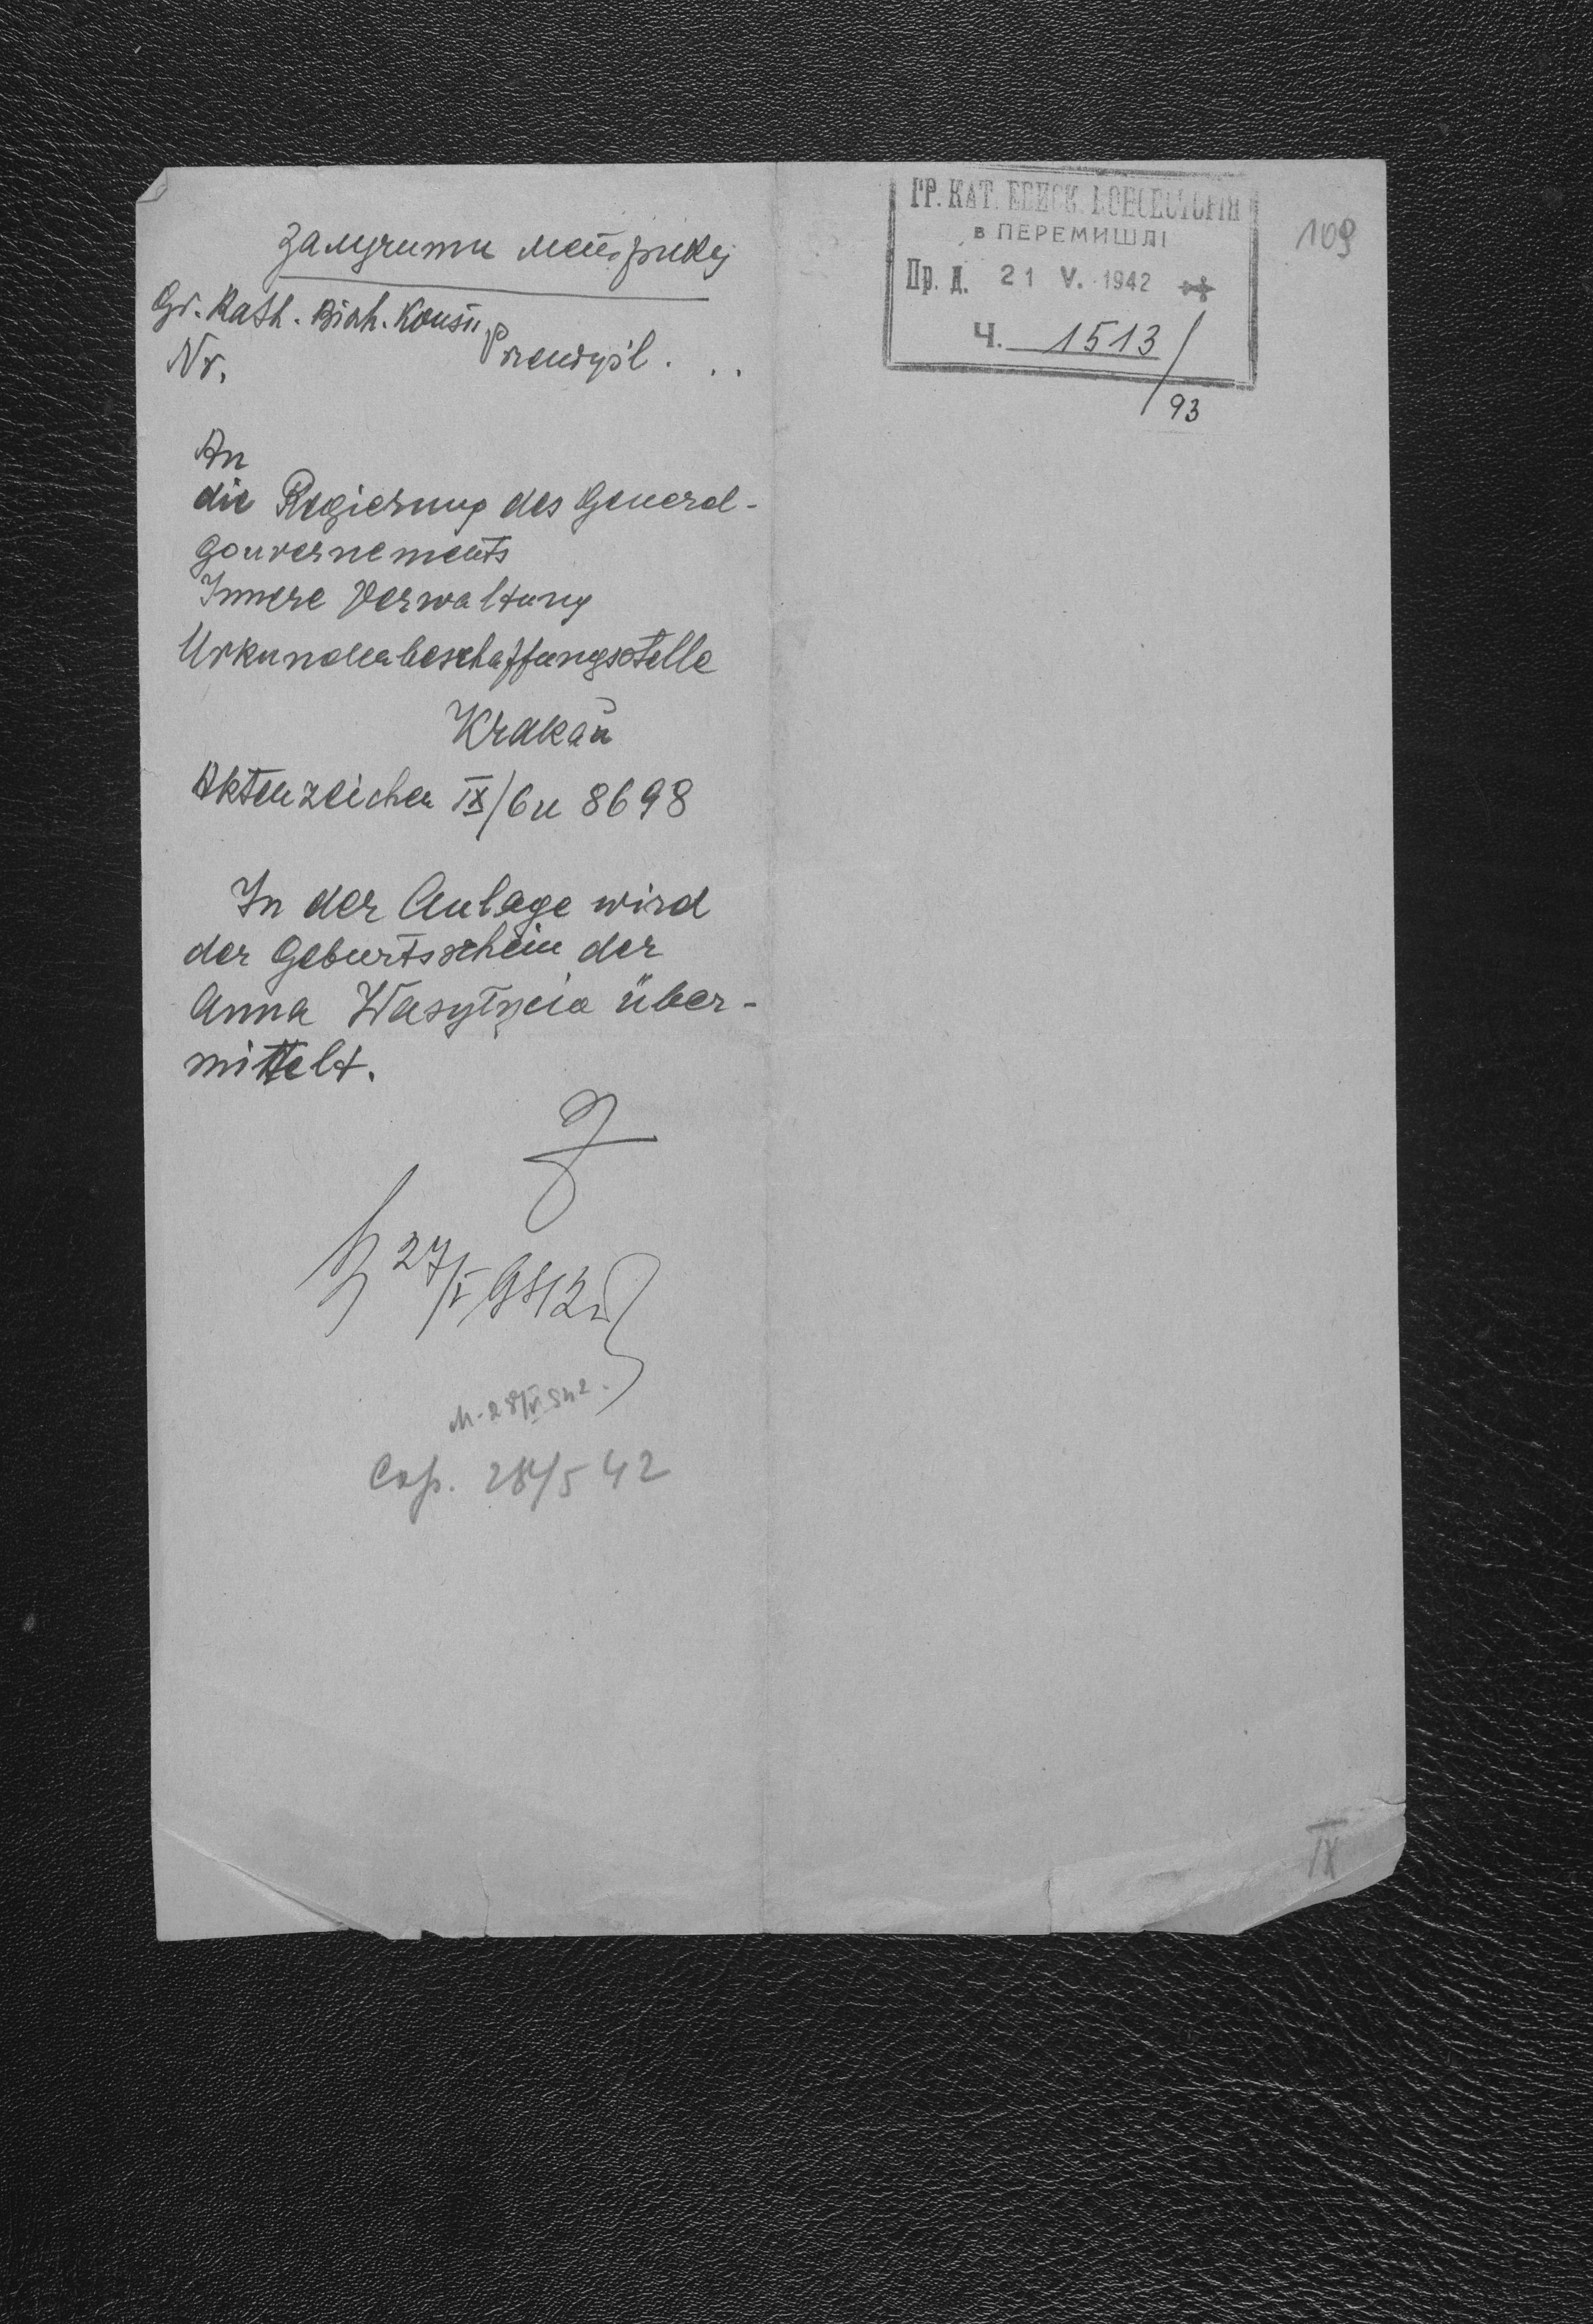 залучити метрику
Gr. Kath. Bish. Konsi.
Nr. Przemyśl . . .
An
die Regierung des General-
gouvernements
Innere Verwaltung
Urkundenbeschaffungsstelle
Krakau
Aktenzeichen IX/6u 8698
In der Anlage wird
der Geburtsschein der
Anna über-
mittelt.
27/V 942
28/V 942.
Cop. 28/5 42
ГР. КАТ. ЕПИСК. КОНСИСТОРІЯ
в ПЕРЕМИШЛІ
Пр. д. 21 V. 1942
Ч. 1513/
93
109
IX